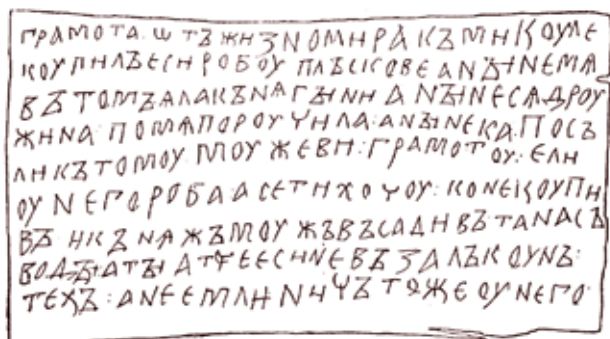 ГРАМОТА ѠТЪ ЖИЗНОМИРА КЪ МИКОУЛЕ
КОУПИЛЪ ЕСИ РОБОУ ПЛЪСКОВЕ А НЫНЕ МѦ
ВЪ ТОМЪ ѦЛА КЪНѦГЫНИ А НЫНЕ СѦ ДРОУ
ЖИНА: ПО МѦ ПОРОУЧИЛА: А НЫНЕ КА: ПОСЪ
ЛИ КЪ ТОМОУ: МОУЖЕВИ: ГРАМОТОУ: ЕЛИ
ОУ НЕГО РОБА: А СЕ ТИ ХОЧОУ: КОНЕ КОУПИ
ВЪ И КЪНѦЖЪ МОУЖЪ ВЪСАДИВЪ ТА НА СЪ
ВОДЫ: А ТЫ АТЧЕ ЕСИ НЕ ВЪЗАЛЪ КОУНЪ:
ТЕХЪ: А НЕ ЕМЛИ НИЧЪТОЖЕ ОУ НЕГО